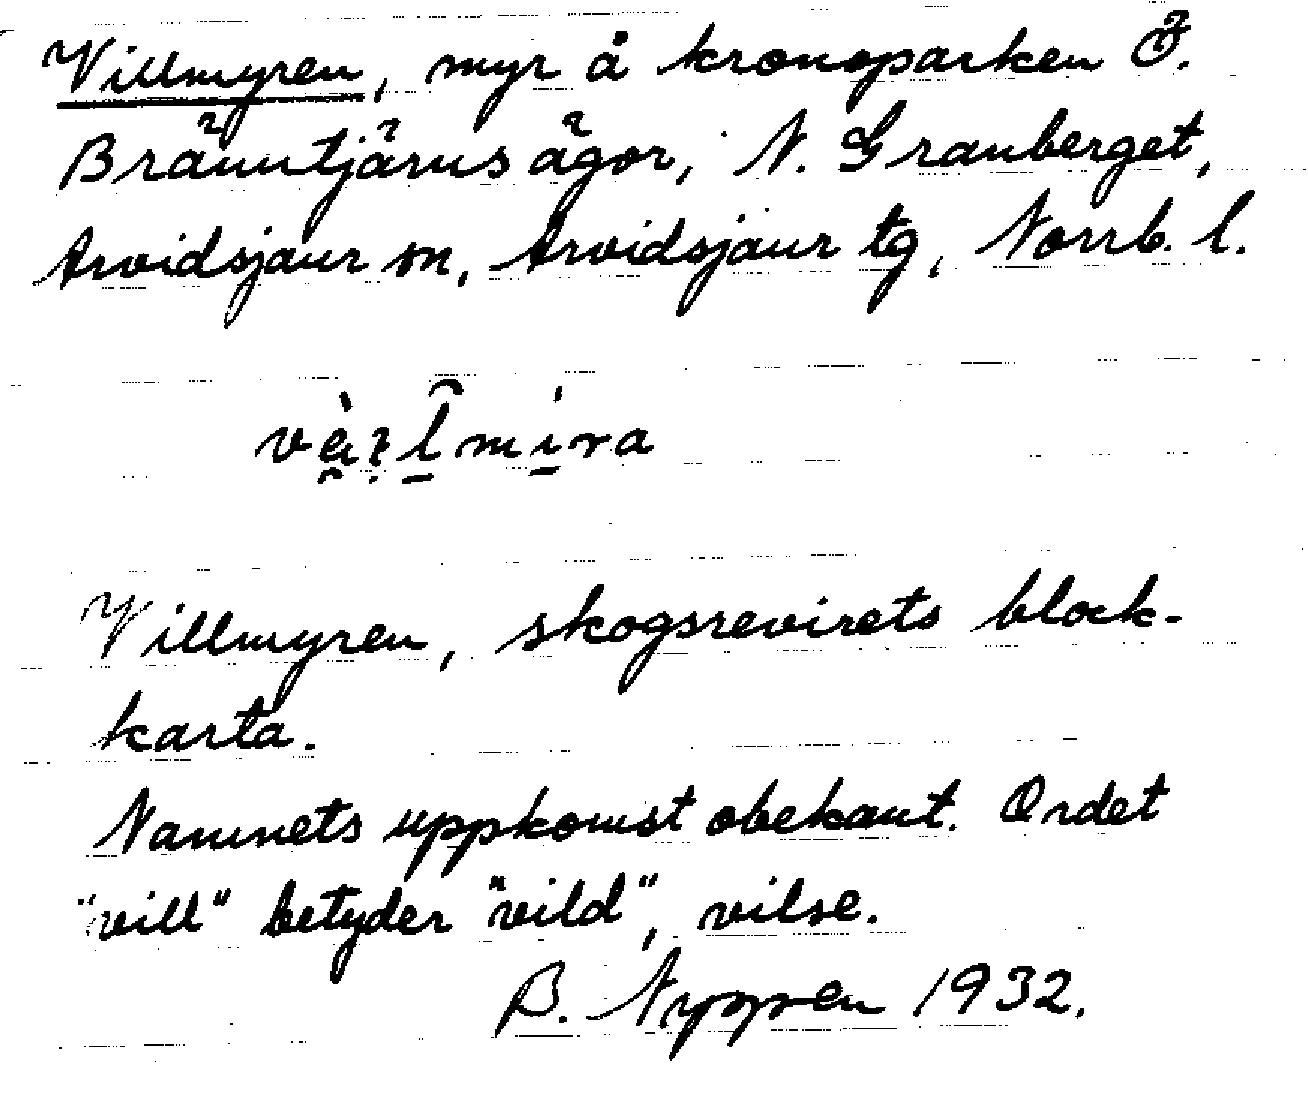 Villmyren, myr å kronoparken Ö.
Bränntjärns ägor, N. Granberget,
Arvidsjaur sn, Arvidsjaur tg, Norrb. l.
Villmyren, skogsrevirets block-
karta.
Namnets uppkomst obekant. Ordet
"vill" betyder "vild", vilse.
B. Nygren 1932.